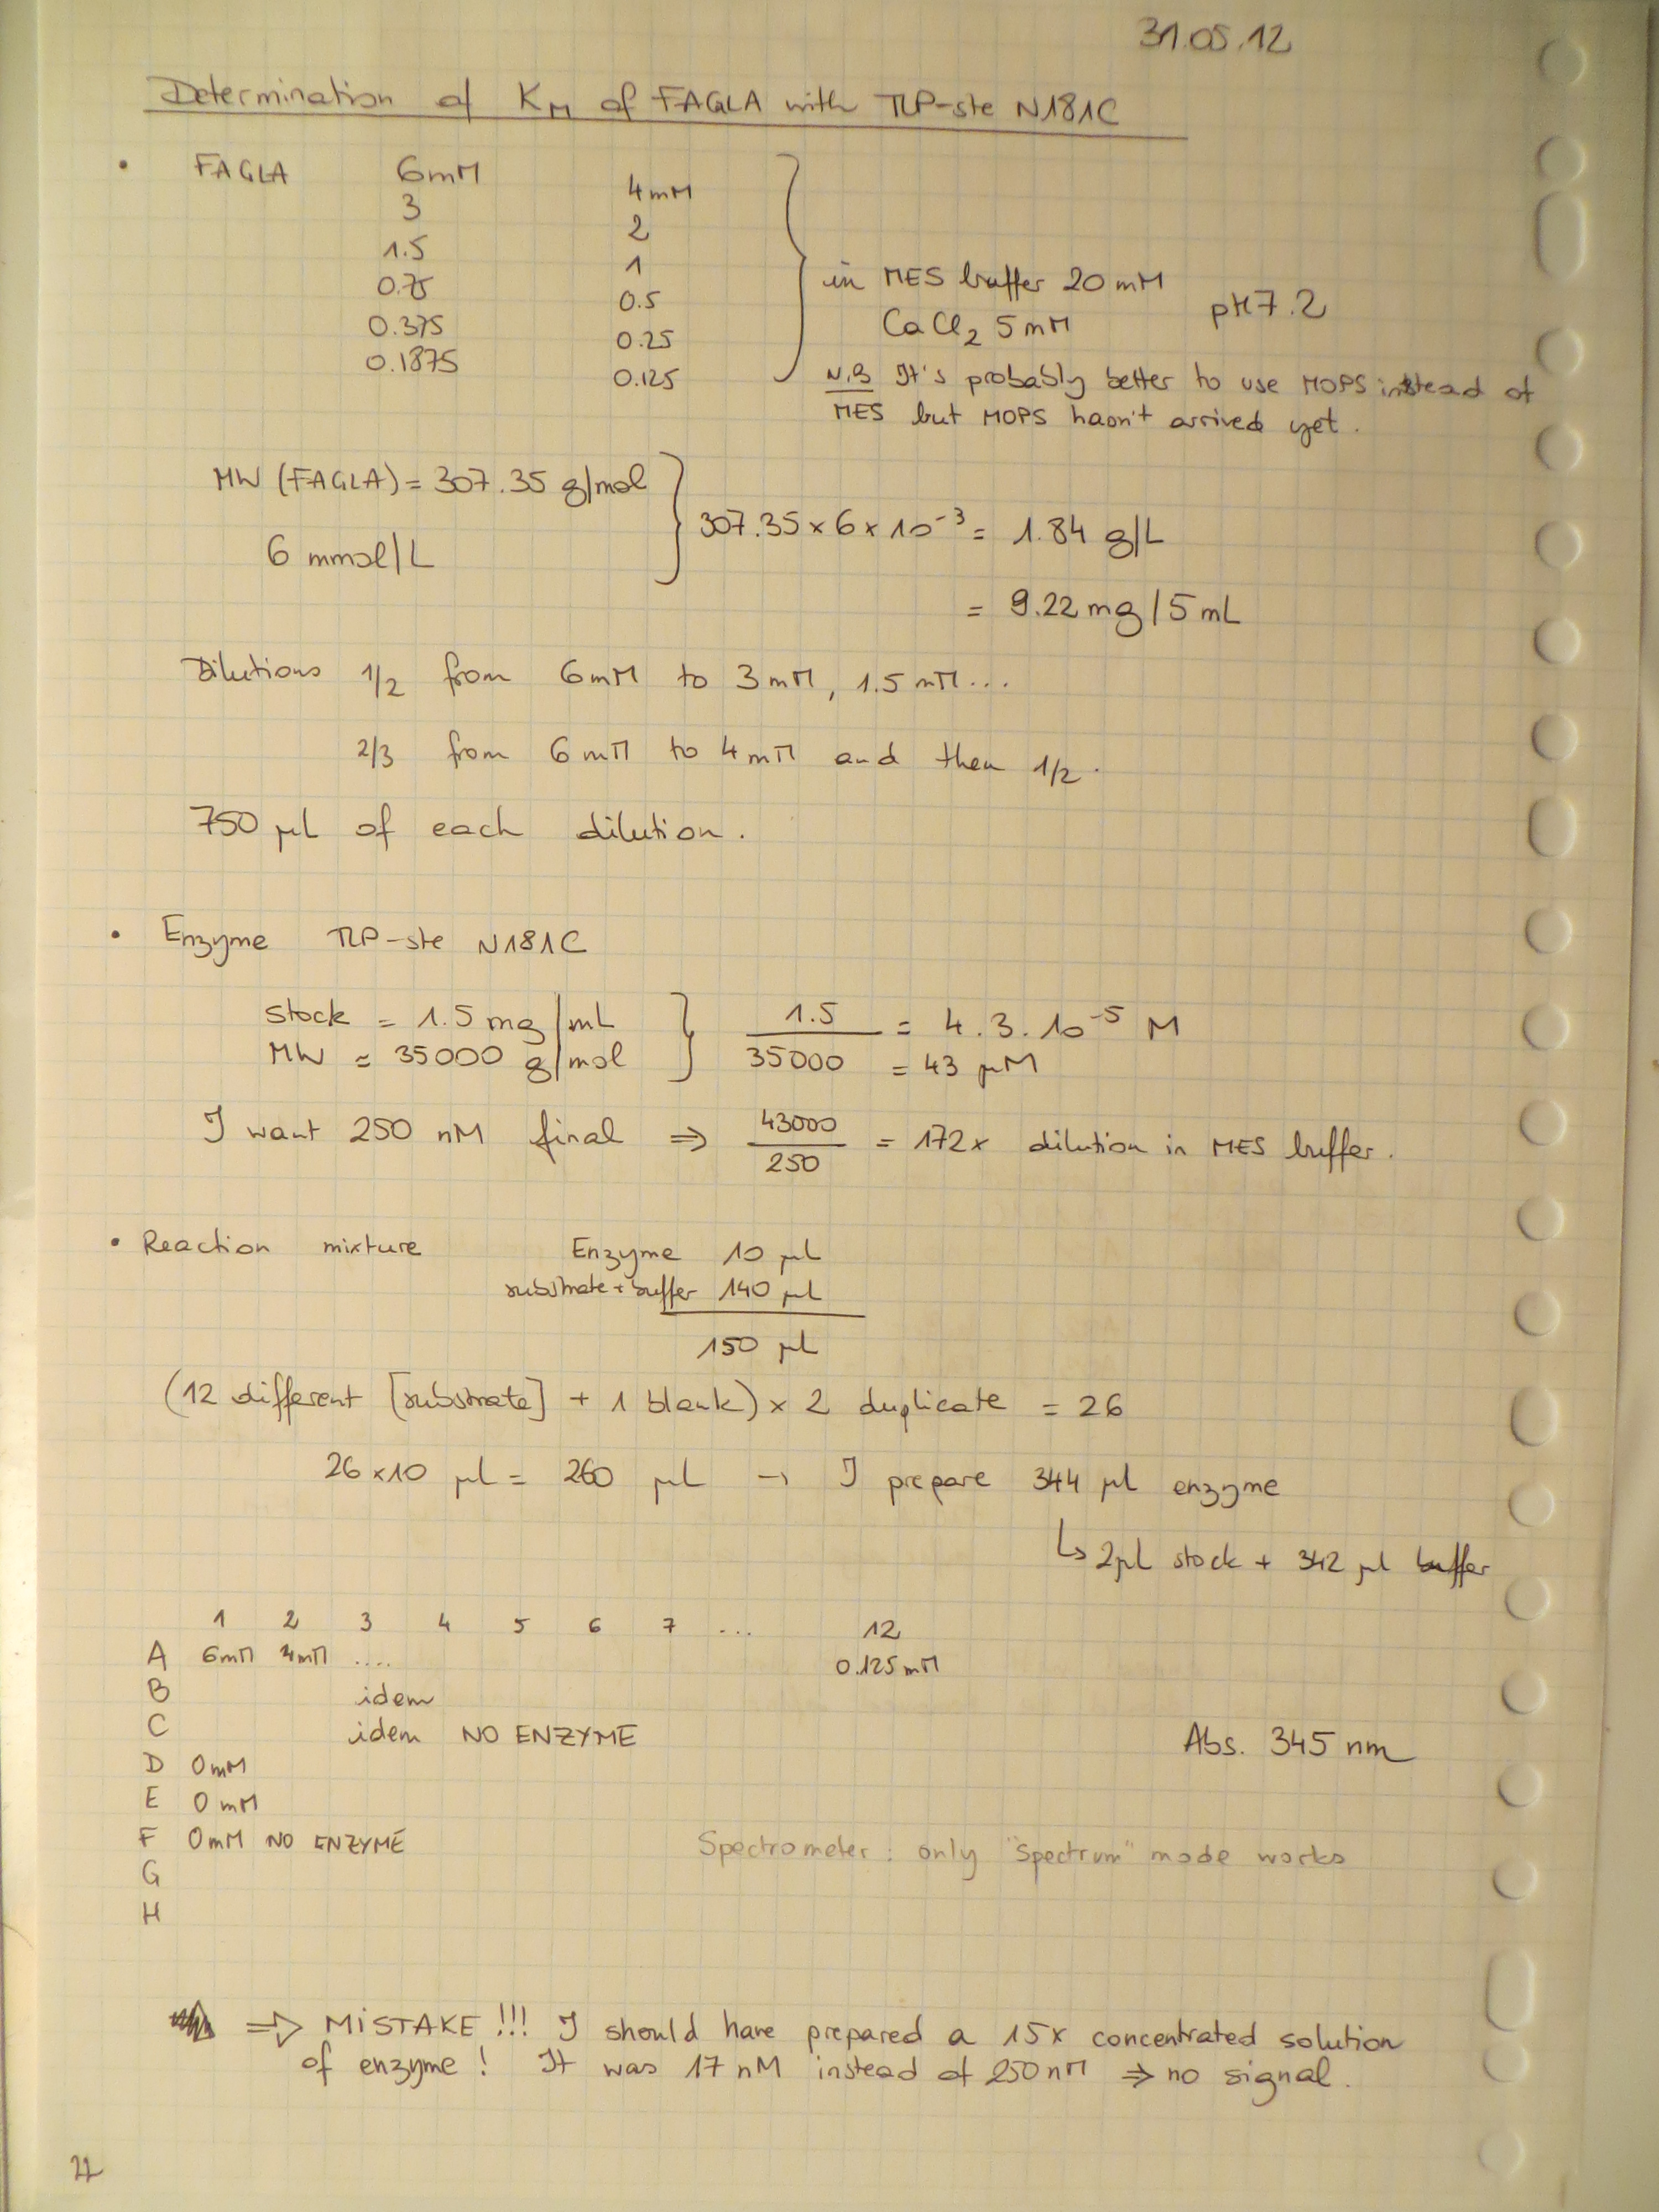 31.05.12
Determination of KM of FAGLA with TLP-ste N181C
• FAGLA 6mM 4mM
3 2
1.5 1
0.75 0.5
0.375 0.25
0.1875 0.125
in MES buffer 20 mM
CaCl2 5 mM pH 7.2
N.B It's probably better to use MOPS instead of
MES but MOPS hasn't arrived yet.
MW (FAGLA) = 307.35 g/mol
6 mmol/L
307.35 x 6 x 10-3 = 1.84 g/L
= 9.22 mg / 5 mL
Dilutions 1/2 from 6mM to 3mM, 1.5 mM...
2/3 from 6 mM to 4 mM and then 1/2.
750 µL of each dilution.
• Enzyme TLP-ste N181C
stock = 1.5 mg/mL
MW = 35000 g/mol
1.5 / 35000 = 4.3.10-5 M
= 43 µM
I want 250 nM final ⇒ 43000 / 250 = 172x dilution in MES buffer.
• Reaction mixture Enzyme 10 µL
substrate + buffer 140 µL
150 µL
(12 different [substrate] + 1 blank) x 2 duplicate = 26
26 x 10 µL = 260 µL → I prepare 344 µL enzyme
↳ 2µL stock + 342 µL buffer
1 2 3 4 5 6 7 ... 12
A 6mM 4mM .... 0.125 mM
B idem
C idem NO ENZYME
Abs. 345 nm
D 0mM
E 0 mM
F 0mM NO ENZYME
Spectrometer : only "Spectrum" mode works
G
H
⇒ MISTAKE !!! I should have prepared a 15x concentrated solution
of enzyme ! It was 17 nM instead of 250 nM ⇒ no signal.